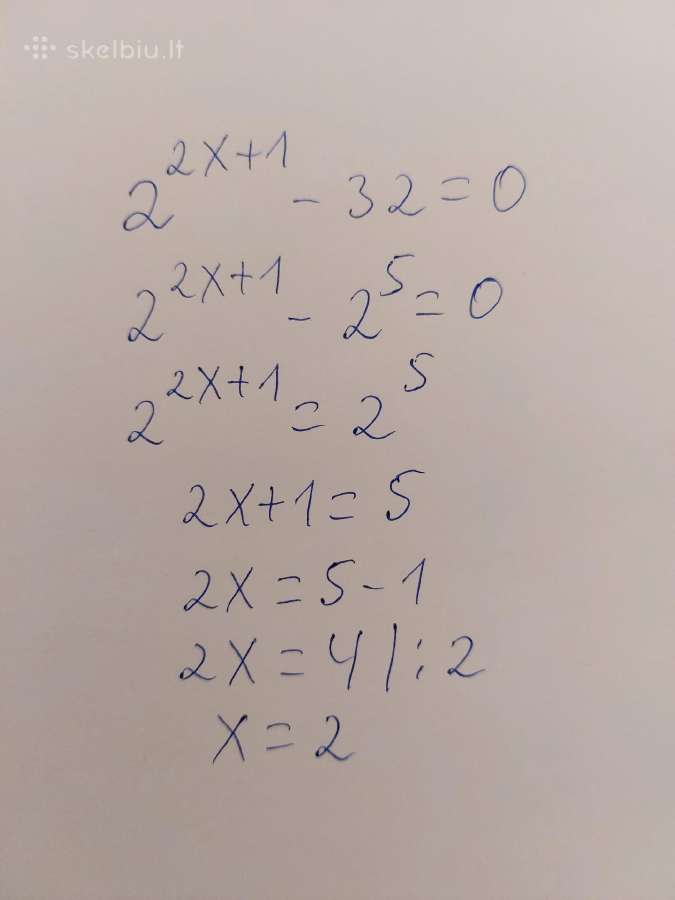 skelbiu.lt
2^{2x+1} - 32 = 0
2^{2x+1} - 2^5 = 0
2^{2x+1} = 2^5
2x+1 = 5
2x = 5 - 1
2x = 4 | : 2
x = 2